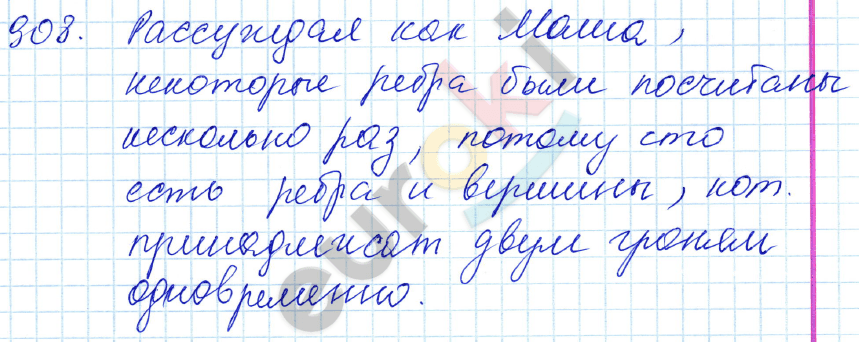 908. Рассуждая как Маша,
некоторые ребра были посчитаны
несколько раз, потому что
есть ребра и вершины, кот.
принадлежат двум граням
одновременно.
euroki